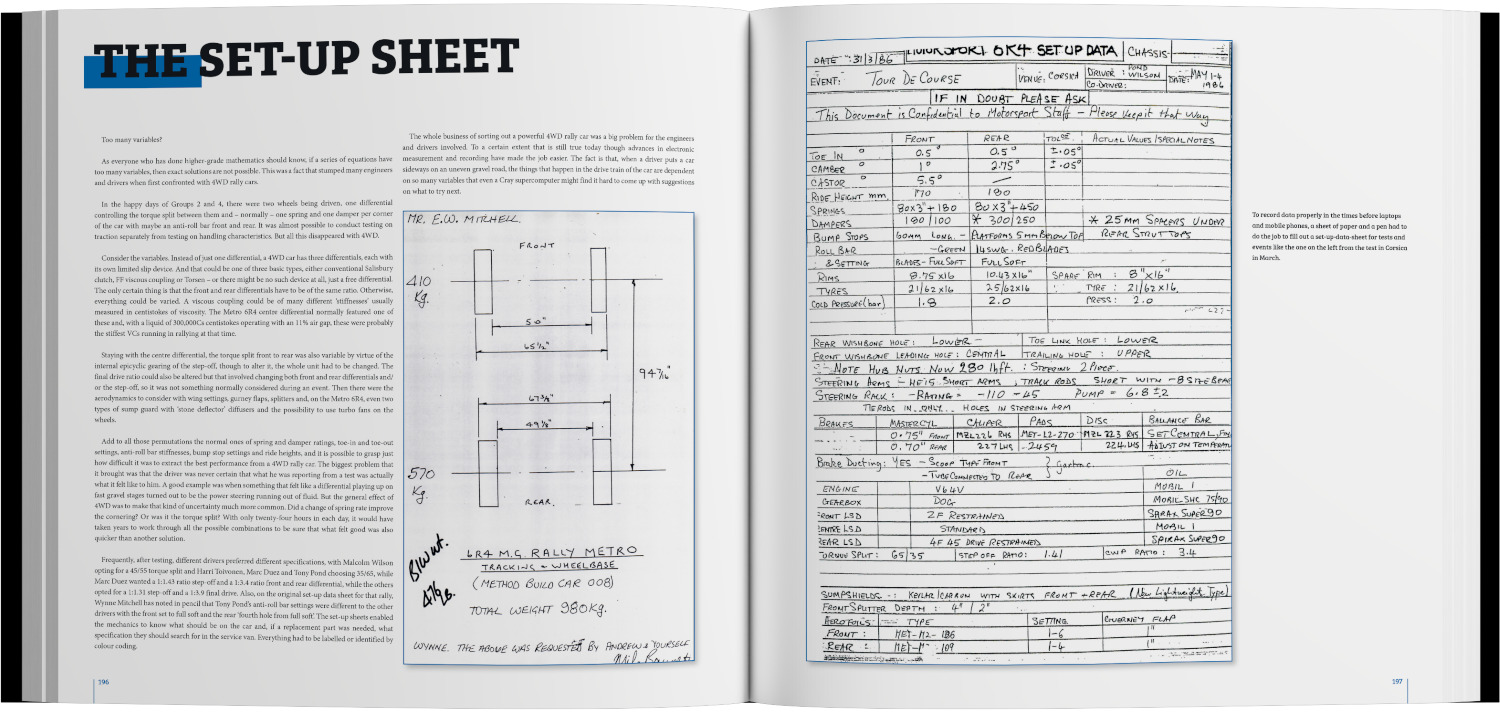 THE SET-UP SHEET
Too many variables?
As everyone who has done higher-grade mathematics should know, if a series of equations have
too many variables, then exact solutions are not possible. This was a fact that stumped many engineers
and drivers when first confronted with 4WD rally cars.
In the happy days of Groups 2 and 4, there were two wheels being driven, one differential
controlling the torque split between them and – normally – one spring and one damper per corner
of the car with maybe an anti-roll bar front and rear. It was almost possible to conduct testing on
traction separately from testing on handling characteristics. But all this disappeared with 4WD.
Consider the variables. Instead of just one differential, a 4WD car has three differentials, each with
its own limited slip device. And that could be one of three basic types, either conventional Salisbury
clutch, FF viscous coupling or Torsen – or there might be no such device at all, just a free differential.
The only certain thing is that the front and rear differentials have to be of the same ratio. Otherwise,
everything could be varied. A viscous coupling could be of many different 'stiffnesses' usually
measured in centistokes of viscosity. The Metro 6R4 centre differential normally featured one of
these and, with a liquid of 300,000Cs centistokes operating with an 11% air gap, these were probably
the stiffest VCs running in rallying at that time.
Staying with the centre differential, the torque split front to rear was also variable by virtue of the
internal epicyclic gearing of the step-off, though to alter it, the whole unit had to be changed. The
final drive ratio could also be altered but that involved changing both front and rear differentials and/
or the step-off, so it was not something normally considered during an event. Then there were the
aerodynamics to consider with wing settings, gurney flaps, splitters and, on the Metro 6R4, even two
types of sump guard with 'stone deflector' diffusers and the possibility to use turbo fans on the
wheels.
Add to all those permutations the normal ones of spring and damper ratings, toe-in and toe-out
settings, anti-roll bar stiffnesses, bump stop settings and ride heights, and it is possible to grasp just
how difficult it was to extract the best performance from a 4WD rally car. The biggest problem that
it brought was that the driver was never certain that what he was reporting from a test was actually
what it felt like to him. A good example was when something that felt like a differential playing up on
fast gravel stages turned out to be the power steering running out of fluid. But the general effect of
4WD was to make that kind of uncertainty much more common. Did a change of spring rate improve
the cornering? Or was it the torque split? With only twenty-four hours in each day, it would have
taken years to work through all the possible combinations to be sure that what felt good was also
quicker than another solution.
Frequently, after testing, different drivers preferred different specifications, with Malcolm Wilson
opting for a 45/55 torque split and Harri Toivonen, Marc Duez and Tony Pond choosing 35/65, while
Marc Duez wanted a 1:1.43 ratio step-off and a 1:3.4 ratio front and rear differential, while the others
opted for a 1:1.31 step-off and a 1:3.9 final drive. Also, on the original set-up data sheet for that rally,
Wynne Mitchell has noted in pencil that Tony Pond's anti-roll bar settings were different to the other
drivers with the front set to full soft and the rear 'fourth hole from full soft'. The set-up sheets enabled
the mechanics to know what should be on the car and, if a replacement part was needed, what
specification they should search for in the service van. Everything had to be labelled or identified by
colour coding.
196
The whole business of sorting out a powerful 4WD rally car was a big problem for the engineers
and drivers involved. To a certain extent that is still true today though advances in electronic
measurement and recording have made the job easier. The fact is that, when a driver puts a car
sideways on an uneven gravel road, the things that happen in the drive train of the car are dependent
on so many variables that even a Cray supercomputer might find it hard to come up with suggestions
on what to try next.
MR. E.W. MITCHELL.
FRONT
410
Kg.
50"
65½"
94 7/16"
67 3/8"
49 1/8"
570
Kg.
REAR.
6R4 M.G. RALLY METRO
TRACKING & WHEELBASE
(METHOD BUILD CAR 008)
TOTAL WEIGHT 980Kg.
WYNNE. THE ABOVE WAS REQUESTED BY ANDREW & YOURSELF
DATE 31/3/86 MOTORSPORT 6R4 SET UP DATA CHASSIS
EVENT: TOUR DE COURSE VENUE: CORSICA DRIVER: POND WILSON CO-DRIVER: DATE: MAY 1-4 1986
IF IN DOUBT PLEASE ASK
This Document is Confidential to Motorsport Staff – Please Keep it that Way
FRONT REAR TOLCE ACTUAL VALUES/SPECIAL NOTES
TOE IN ° 0.5° 0.5° ±.05°
CAMBER ° 1° 2.75° ±.05°
CASTOR ° 5.5° —
RIDE HEIGHT mm 170 180
SPRINGS 80x3"+180 80x3"+450
DAMPERS 180/100 * 300/250 * 25MM SPACERS UNDER
BUMP STOPS 60mm LONG. – PLATFORMS 5mm BELOW TOP REAR STRUT TOPS
ROLL BAR – GREEN 14SWG. RED BLADES
& SETTING BLADES – FULL SOFT FULL SOFT
RIMS 8.75x16 10.43x16" SPARE RIM : 8"x16"
TYRES 21/62x16 25/62x16 TYRE : 21/62x16.
COLD PRESSURE (bar) 1.8 2.0 PRESS : 2.0
REAR WISHBONE HOLE : LOWER – TOE LINK HOLE : LOWER
FRONT WISHBONE LEADING HOLE : CENTRAL TRAILING HOLE : UPPER
NOTE HUB NUTS NOW 280 lbft. : STEERING 2 PIECE.
STEERING ARMS – HE15 SHORT ARMS , TRACK RODS SHORT WITH
STEERING RACK : – RATING = –110 –45 PUMP = 6.8 ±2
TIERODS IN HOLES IN STEERING ARM
BRAKES MASTERCYL CALIPER PADS DISC BALANCE BAR
0.75" FRONT MRL226 RHS MET-12-270 MRL 223 RHS SET CENTRAL,
0.70" REAR 227 LHS 2459 224 LHS ADJUST ON
Brake Ducting: YES – SCOOP TYPE FRONT
– TUBE CONNECTED TO REAR
OIL
ENGINE V64V MOBIL 1
GEARBOX DOG MOBIL SHC 75/90
FRONT LSD ZF RESTRAINED SPIRAX SUPER 90
CENTRE LSD STANDARD MOBIL 1
REAR LSD 4F 45 DRIVE RESTRAINED SPIRAX SUPER 90
TORQUE SPLIT : 65/35 STEP OFF RATIO : 1.41 CWP RATIO : 3.4
SUMPSHIELDS : KEVLAR/CARBON WITH SKIRTS FRONT + REAR (New Lightweight Type)
FRONT SPLITTER DEPTH : 4" / 2"
AEROFOILS TYPE SETTING GURNEY FLAP
FRONT : MET-M2-186 1-6 1"
REAR : 109 1-4 1"
To record data properly in the times before laptops
and mobile phones, a sheet of paper and a pen had to
do the job to fill out a set-up-data-sheet for tests and
events like the one on the left from the test in Corsica
in March.
197